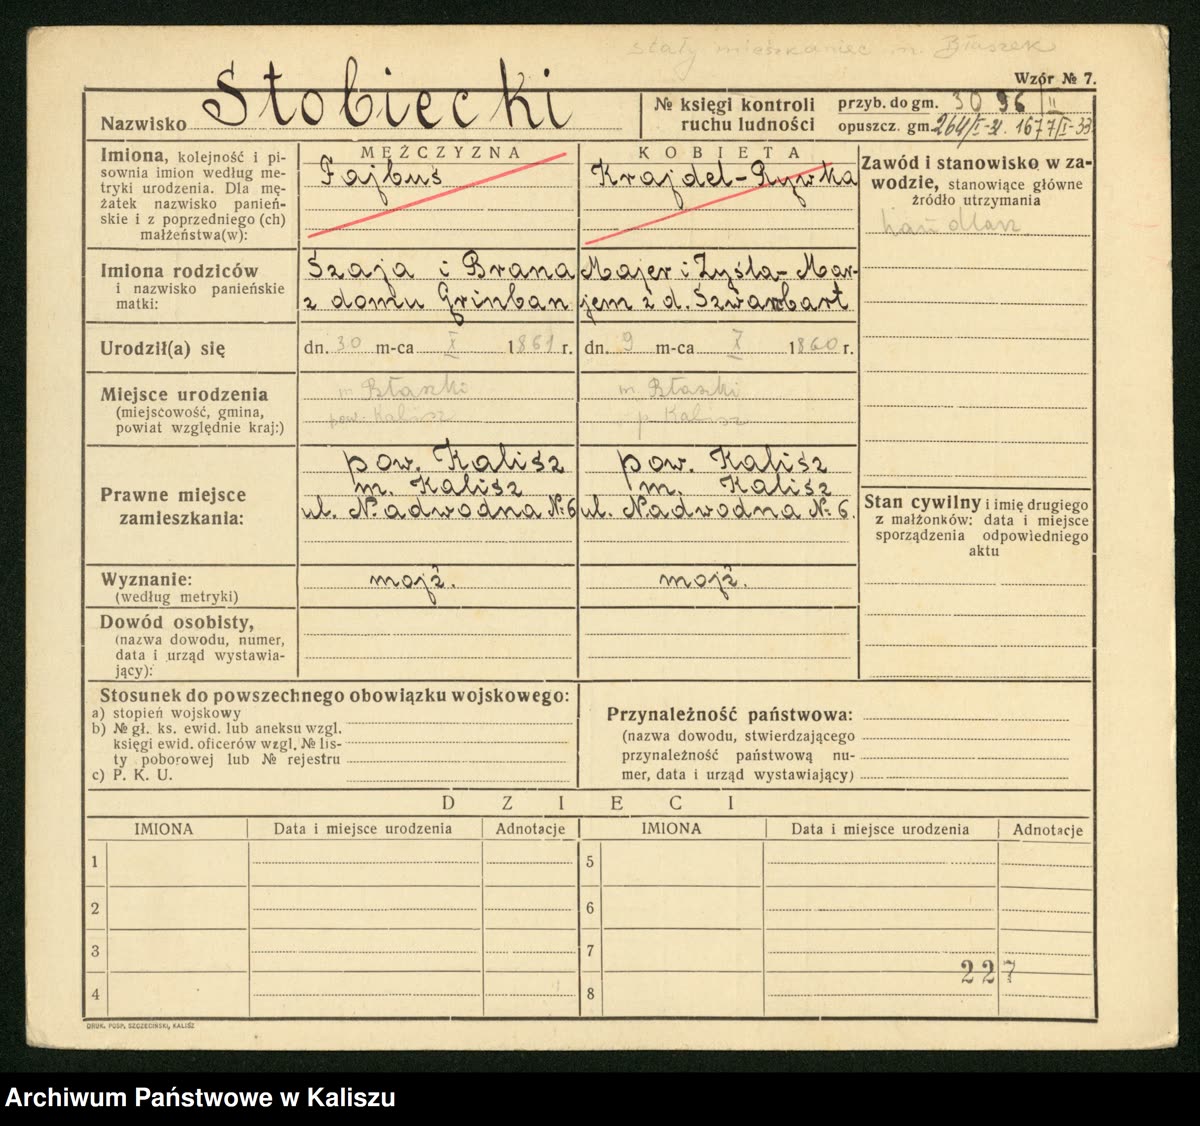 stały mieszkaniec m. Błaszek
Wzór № 7.
Nazwisko Stobiecki
№ księgi kontroli ruchu ludności
przyb. do gm. 3096/II
opuszcz. gm. 264/I-31. 1677/I-33
Imiona, kolejność i pi-
sownia imion według me-
tryki urodzenia. Dla mę-
żatek nazwisko panień-
skie i z poprzedniego (ch)
małżeństwa(w):
MĘŻCZYZNA
Fajbuś
KOBIETA
Krajdel-Rywka
Zawód i stanowisko w za-
wodzie, stanowiące główne
źródło utrzymania
handlarz
Imiona rodziców
i nazwisko panieńskie
matki:
Szaja i Brana
z domu Grinban
Majer i Zysla-Mar-
jem z d. Szwarcbart
Urodził(a) się
dn. 30 m-ca X 1861 r.
dn. 9 m-ca X 1860 r.
Miejsce urodzenia
(miejscowość, gmina,
powiat względnie kraj:)
m. Błaszki
pow. Kalisz
m. Błaszki
p. Kalisz
Prawne miejsce
zamieszkania:
pow. Kalisz
m. Kalisz
ul. Nadwodna № 6
pow. Kalisz
m. Kalisz
ul. Nadwodna № 6.
Stan cywilny i imię drugiego
z małżonków: data i miejsce
sporządzenia odpowiedniego
aktu
Wyznanie:
(według metryki)
mojż.
mojż.
Dowód osobisty,
(nazwa dowodu, numer,
data i urząd wystawia-
jący):
Stosunek do powszechnego obowiązku wojskowego:
a) stopień wojskowy
b) № gł. ks. ewid. lub aneksu wzgl.
księgi ewid. oficerów wzgl. № lis-
ty poborowej lub № rejestru
c) P. K. U.
Przynależność państwowa:
(nazwa dowodu, stwierdzającego
przynależność państwową nu-
mer, data i urząd wystawiający)
DZIECI
IMIONA Data i miejsce urodzenia Adnotacje IMIONA Data i miejsce urodzenia Adnotacje
1 5
2 6
3 7
227
4 8
DRUK. POSP. SZCZECIŃSKI, KALISZ
Archiwum Państwowe w Kaliszu